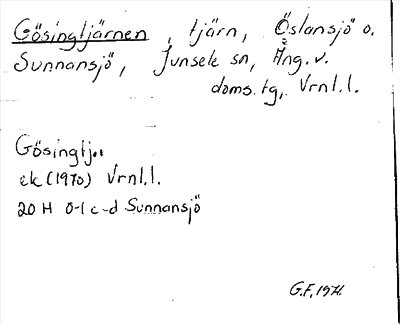 Gösingtjärnen, tjärn, Öslansjö o.
Sunnansjö, Junsele sn, Ång. v.
doms. tg, Vrnl.l.
Gösingtj..
ek (1970) Vrnl.l.
20 H 0-1 c-d Sunnansjö
G.F. 1971.